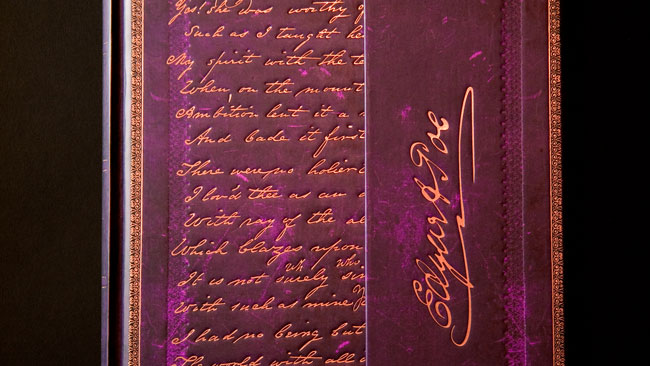 Yes! she was worthy
Such as I taught
My spirit with the
When, on the mount
Ambition lent it a
And bade it first
There were no holier
I lov'd thee as an
With ray of the
Which blazes upon
It is not surely
With such as mine
I had no being but
The world with all
Edgar A Poe